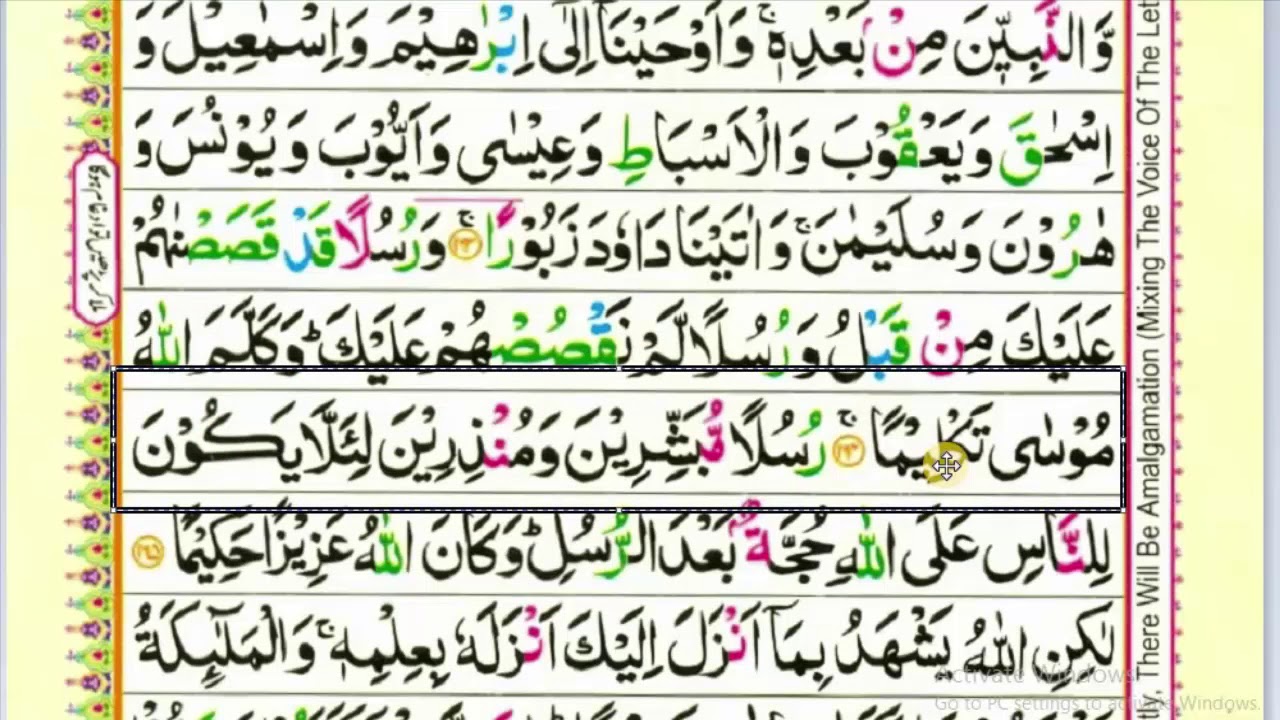 وَّالنَّبِيّٖنَ مِنْۢ بَعْدِهٖ ۚ وَاَوْحَيْنَاۤ اِلٰۤى اِبْرٰهِيْمَ وَاِسْمٰعِيْلَ وَ
اِسْحٰقَ وَيَعْقُوْبَ وَالْاَسْبَاطِ وَعِيْسٰى وَاَيُّوْبَ وَيُوْنُسَ وَ
هٰرُوْنَ وَسُلَيْمٰنَ ۚ وَاٰتَيْنَا دَاوٗدَ زَبُوْرًا ۚ ۱۶۳ وَرُسُلًا قَدْ قَصَصْنٰهُمْ
عَلَيْكَ مِنْ قَبْلُ وَرُسُلًا لَّمْ نَقْصُصْهُمْ عَلَيْكَ ؕ وَكَلَّمَ اللّٰهُ
مُوْسٰى تَكْلِيْمًا ۚ ۱۶۴ رُسُلًا مُّبَشِّرِيْنَ وَمُنْذِرِيْنَ لِئَلَّا يَكُوْنَ
لِلنَّاسِ عَلَى اللّٰهِ حُجَّةٌۢ بَعْدَ الرُّسُلِ ؕ وَكَانَ اللّٰهُ عَزِيْزًا حَكِيْمًا ۱۶۵
لٰكِنِ اللّٰهُ يَشْهَدُ بِمَاۤ اَنْزَلَ اِلَيْكَ اَنْزَلَهٗ بِعِلْمِهٖ ۚ وَالْمَلٰٓئِكَةُ
tly, There Will Be Amalgamation (Mixing The Voice Of The Let
Activate Windows
Go to PC settings to activate Windows.